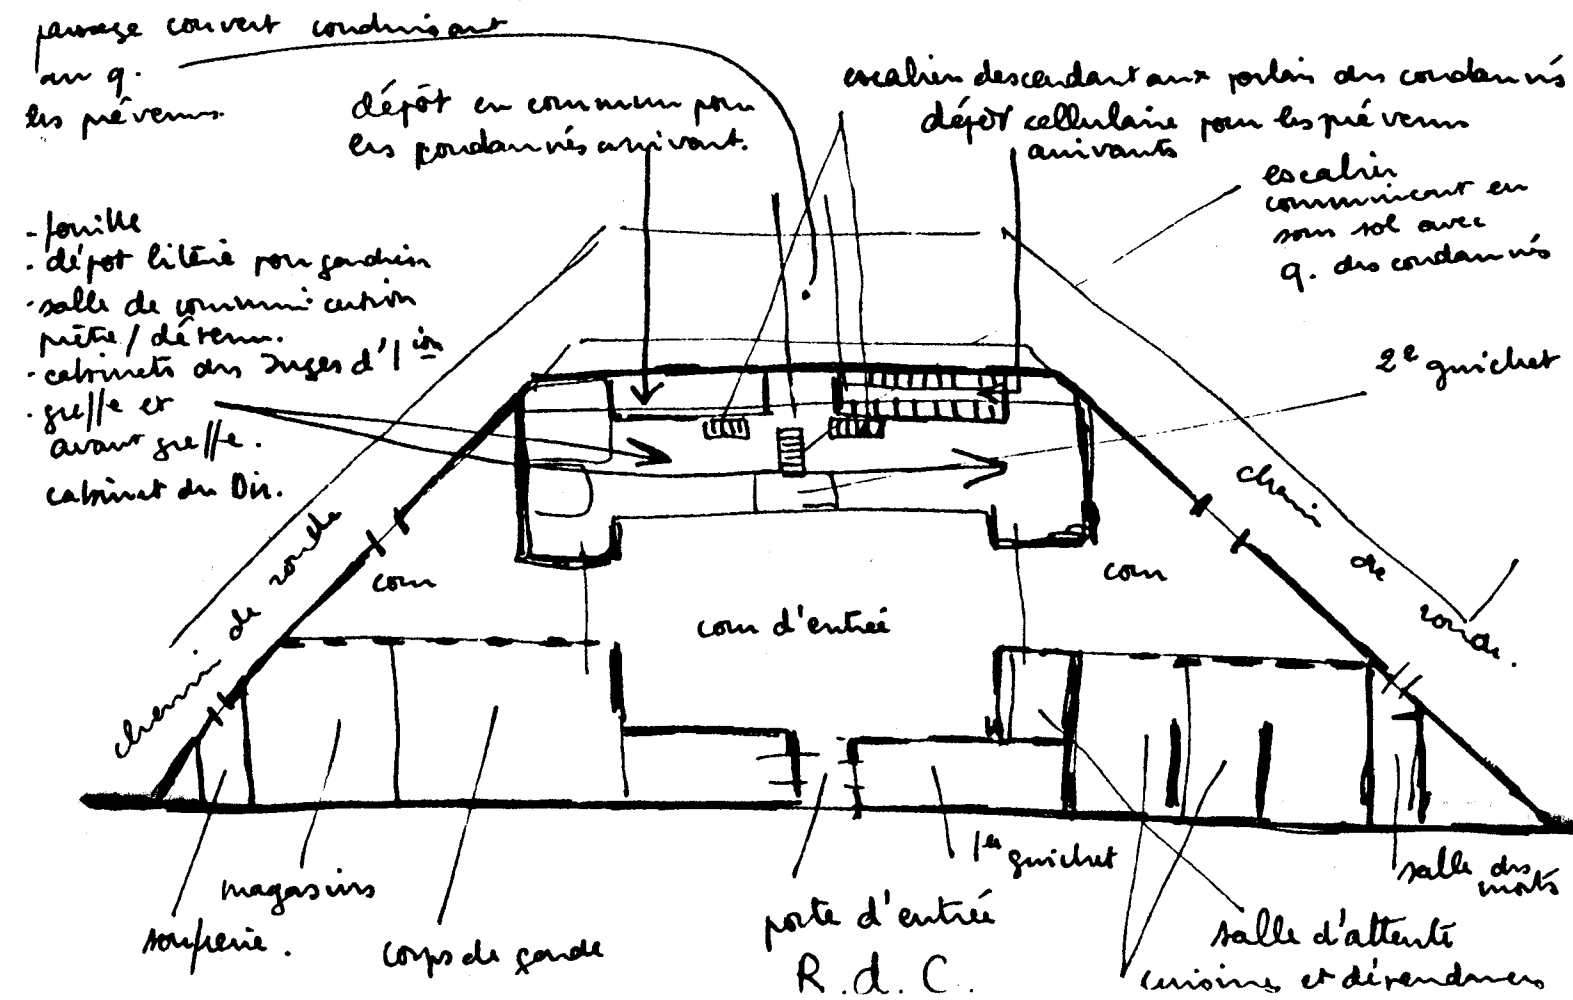 passage couvert conduisant
au q.
les prévenus.
dépôt en commun pour
les condamnés arrivant.
escalier descendant aux parloirs des condamnés
dépôt cellulaire pour les prévenus
arrivants
escalier
communicant en
sous sol avec
q. des condamnés
- fouille
- dépôt literie pour gardien
- salle de communication
prêtre / détenu.
- cabinets des Juges d'Iion
- greffe et
avant greffe.
cabinet du Dir.
2e guichet
chemin de ronde
chemin de ronde.
cour
cour
cour d'entrée
1er guichet
salle des
morts
magasins
soufrerie.
corps de garde
porte d'entrée
salle d'attente
cuisines et dépendances
R.d.C.